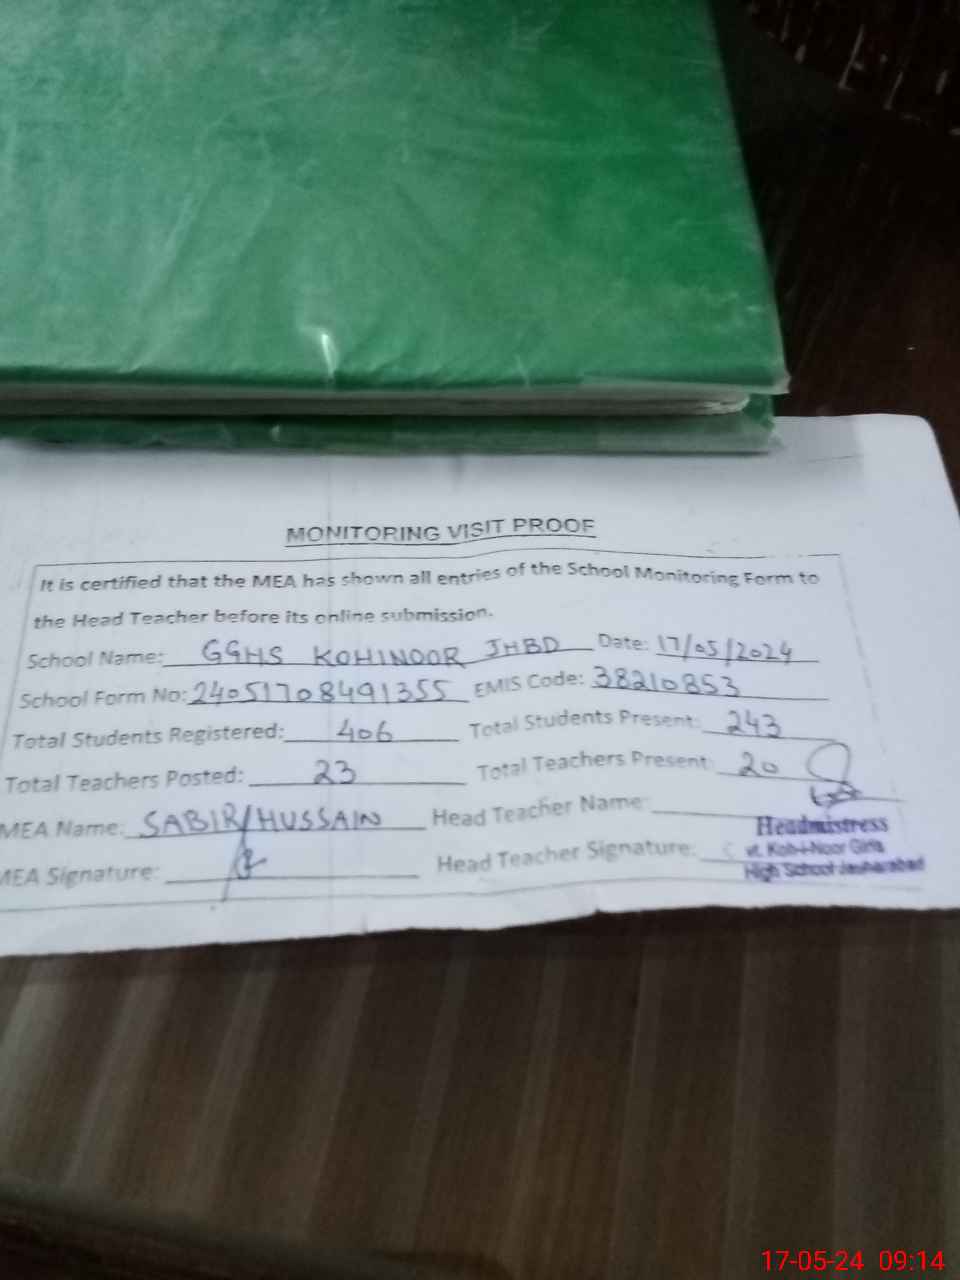 MONITORING VISIT PROOF
It is certified that the MEA has shown all entries of the School Monitoring Form to
the Head Teacher before its online submission.
School Name: GGHS KOHINOOR JHBD Date: 17/05/2024
School Form No: 24051708491355 EMIS Code: 38210853
Total Students Registered: 406 Total Students Present: 243
Total Teachers Posted: 23 Total Teachers Present: 20
MEA Name: SABIR HUSSAIN Head Teacher Name:
Headmistress
MEA Signature: Head Teacher Signature:
vt. Koh-i-Noor Girls
High School Jauharabad
17-05-24 09:14